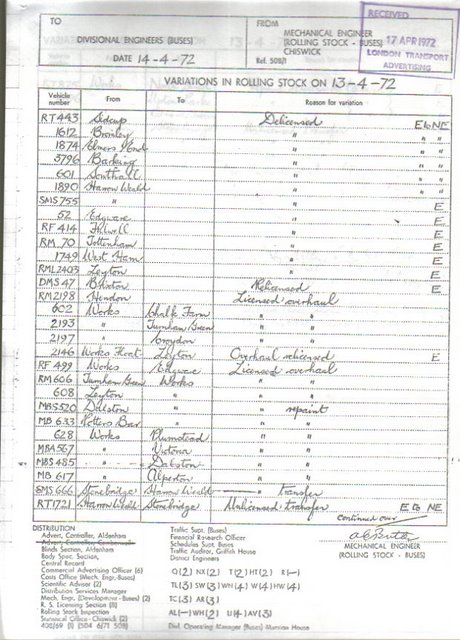 TO
DIVISIONAL ENGINEERS (BUSES)
DATE 14-4-72
FROM
MECHANICAL ENGINEER
(ROLLING STOCK - BUSES)
CHISWICK
Ref. 508/1
RECEIVED
17 APR 1972
LONDON TRANSPORT
ADVERTISING
VARIATIONS IN ROLLING STOCK ON 13-4-72
Vehicle number From To Reason for variation
RT443 Sidcup Delicensed E G NE
1612 Bromley " " "
1874 Elmers End " " "
3796 Barking " " "
601 Southall " " "
1890 Harrow Weald " " "
SMS 755 " " E
52 Edgware " E
RF 414 Fulwell " E
RM 70 Tottenham " E
1749 West Ham " E
RML 2403 Leyton " E
DMS 47 Brixton Relicensed E
RM 2198 Hendon Licensed overhaul
602 Works Chalk Farm " "
2193 " Turnham Green " "
2197 " Croydon " "
2146 Works Float Leyton Overhaul relicensed E
RF 499 Works Edgware Licensed overhaul
RM 606 Turnham Green Works " "
608 Leyton " " "
MBS 520 Dalston " " repaint
MB 633 Potters Bar " " "
628 Works Plumstead " "
MBA 567 " Victoria " "
MBS 485 " Dalston " "
MB 617 " Alperton " "
SMS 666 Stonebridge Harrow Weald " transfer
RT1721 Harrow Weald Stonebridge Unlicensed transfer E G NE
continued over
MECHANICAL ENGINEER
(ROLLING STOCK - BUSES)
DISTRIBUTION
Advert. Controller, Aldenham
Advert. Controller
Blinds Section, Aldenham
Body Spec. Section,
Central Record
Commercial Advertising Officer (6)
Costs Office (Mech. Engr.-Buses)
Scientific Advisor (2)
Distribution Services Manager
Mech. Engr. (Development - Buses) (2)
R. S. Licensing Section (8)
Rolling Stock Inspection
Statistical Office - Chiswick (2)
Traffic Supt. (Buses)
Financial Research Officer
Schedules Supt. Buses
Traffic Auditor, Griffith House
District Engineers
Q(2) NX(2) T(2) HT(2) R(—)
TL(3) SW(3) WN(4) W(4) HW(4)
TC(3) AR(3)
AL(—) WH(2) U(4) AV(3)
Dist. Operating Manager (Buses) Mansion House